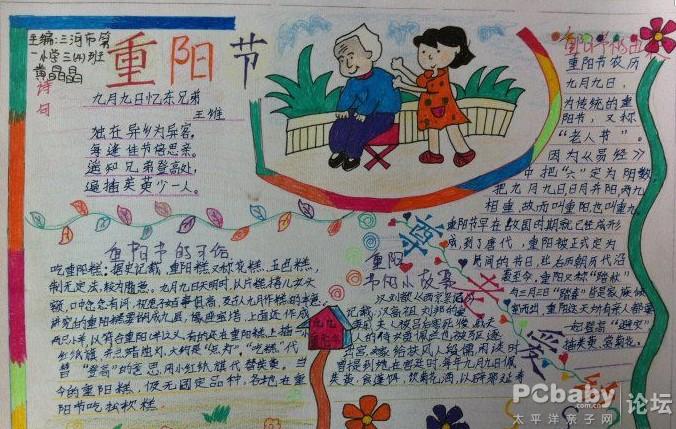 主编:三河市第
一小学三(4)班
黄晶晶
重阳节
诗句
九月九日忆东兄弟
王维
独在异乡为异客,
每逢佳节倍思亲。
遥知兄弟登高处,
遍插茱萸少一人。
重阳节的习俗
吃重阳糕:据史记载,重阳糕又称花糕、五色糕,
制无定法,较为随意。九月九日天明时,以片糕搭儿女头
额,口中念念有词,祝愿子女百事俱高,乃古人九月作糕的本意。
讲究的重阳糕要做成九层,像座宝塔,上面还作成
两只小羊,以符合重阳(羊)之义。有的还在重阳糕上插一小
红纸旗,并点蜡烛灯。大概是"点灯""吃糕"代
替"登高"的意思,用小红纸旗代替茱萸。当
今的重阳糕,仍无固定品种,各地在重
阳节吃松软糕
九九
重阳节
重阳
节的小故事
重阳节的由
重阳节农历
九月九日,
为传统的重
阳节,又称
"老人节"。
因为《易经》
中把"六"定为阴数
把九月九日日月并阳两九
相重,故而叫重阳,也叫重九。
重阳节早在战国时期就已经成形
成,到了唐代,重阳被正式定为
民间的节日,此后历朝历代沿
袭至今,重阳又称"踏秋"
与三月三日"踏春"皆是家族倾
室而出,重阳这天所有亲人都要
一起登高"避灾"
插茱萸、赏菊花。
尊老爱
PCbaby
.com.cn
论坛
太平洋亲子网